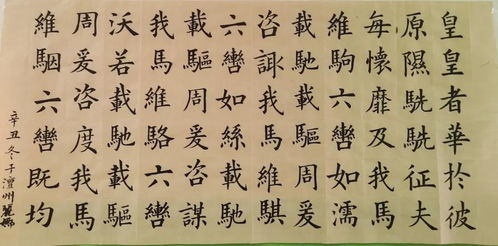 皇皇者華於彼
原隰駪駪征夫
每懷靡及我馬
維駒六轡如濡
載馳載驅周爰
咨諏我馬維騏
六轡如絲載馳
載驅周爰咨謀
我馬維駱六轡
沃若載馳載驅
周爰咨度我馬
維駰六轡既均
辛丑冬于澶州